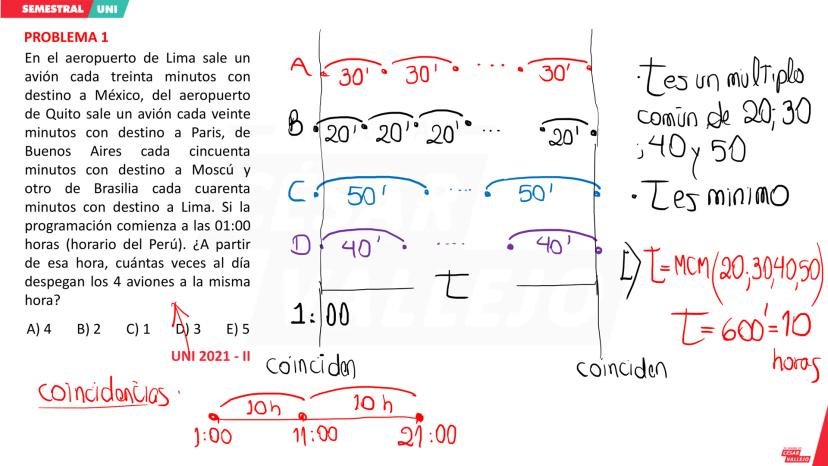 SEMESTRAL UNI
PROBLEMA 1
En el aeropuerto de Lima sale un
avión cada treinta minutos con
destino a México, del aeropuerto
de Quito sale un avión cada veinte
minutos con destino a Paris, de
Buenos Aires cada cincuenta
minutos con destino a Moscú y
otro de Brasilia cada cuarenta
minutos con destino a Lima. Si la
programación comienza a las 01:00
horas (horario del Perú). ¿A partir
de esa hora, cuántas veces al día
despegan los 4 aviones a la misma
hora?
A) 4 B) 2 C) 1 D) 3 E) 5
UNI 2021 - II
A 30' 30' ... 30'
B 20' 20' 20' ... 20'
C 50' .... 50'
D 40' .... 40'
t
1:00
coinciden coinciden
· t es un multiplo
común de 20; 30
; 40 y 50
· t es minimo
t = MCM(20;30,40,50)
t = 600' = 10
horas
coincidencias.
10h 10h
1:00 11:00 21:00
CÉSAR
VALLEJO
CESAR
VALLEJO